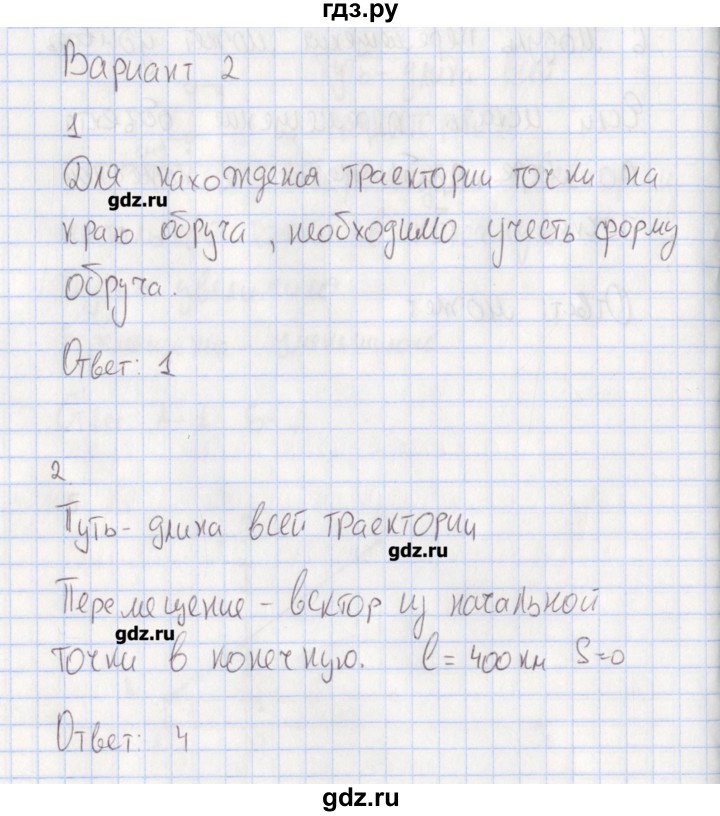 гдз.ру
Вариант 2
1
Для нахождения траектории точки на
gdz.ru
краю обруча, необходимо учесть форму
обруча.
Ответ: 1
2.
Путь - длина всей траектории
gdz.ru
Перемещение - вектор из начальной
gdz.ru
точки в конечную. l = 400 км S=0
Ответ: 4
gdz.ru